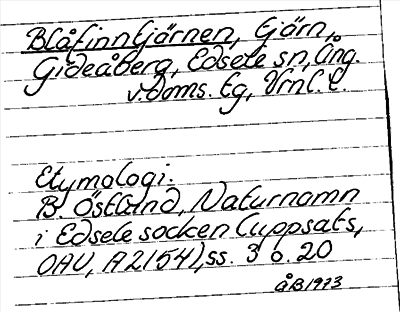 Blåfinntjärnen, tjärn,
Gideåberg, Edsele sn, Ång.
v. doms. tg, Vrnl. l.
Etymologi.
B. Östlund, Naturnamn
i Edsele socken (uppsats,
OAU, A2154), ss. 3 o. 20
åB 1973